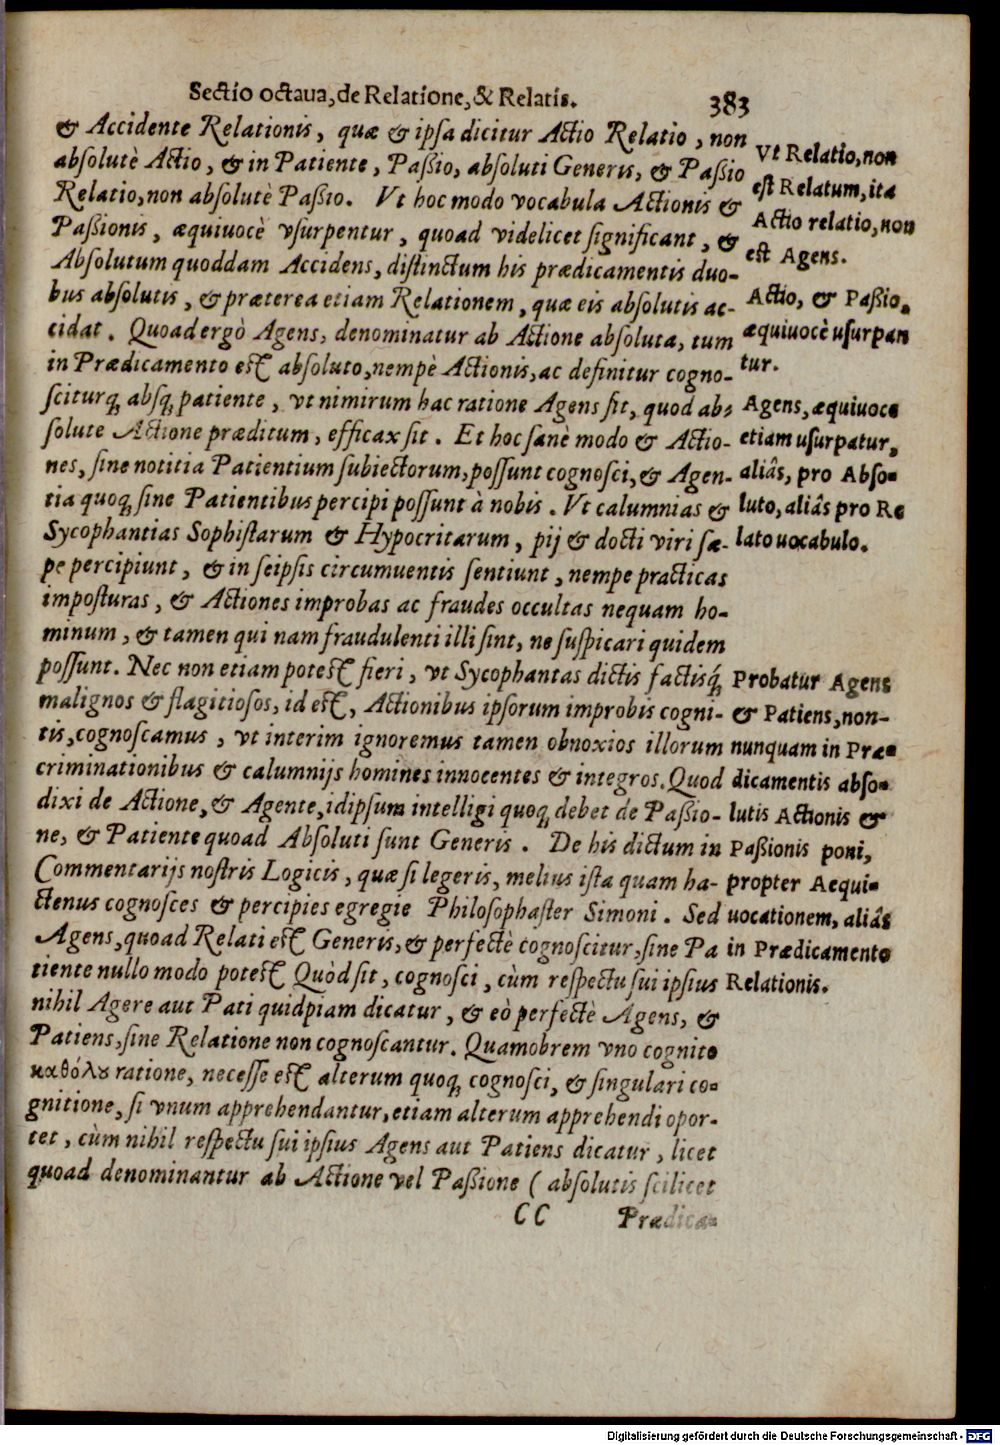 Sectio octaua, de Relatione, & Relatis. 383
& Accidente Relationis, quæ & ipsa dicitur Actio Relatio, non
absolutè Actio, & in Patiente, Paßio, absoluti Generis, & Paßio
Relatio, non absolutè Paßio. Vt hoc modo vocabula Actionis &
Paßionis, æquiuocè vsurpentur, quoad videlicet significant, &
Absolutum quoddam Accidens, distinctum his prædicamentis duo-
bus absolutis, & præterea etiam Relationem, quæ eis absolutis ac-
cidat. Quoad ergò Agens, denominatur ab Actione absoluta, tum
in Prædicamento est absoluto, nempè Actionis, ac definitur cogno-
sciturq; absq; patiente, vt nimirum hac ratione Agens sit, quod ab-
solute Actione præditum, efficax sit. Et hoc sanè modo & Actio-
nes, sine notitia Patientium subiectorum, possunt cognosci, & Agen-
tia quoq; sine Patientibus percipi possunt à nobis. Vt calumnias &
Sycophantias Sophistarum & Hypocritarum, pij & docti viri sæ-
pe percipiunt, & in seipsis circumuentis sentiunt, nempe practicas
imposturas, & Actiones improbas ac fraudes occultas nequam ho-
minum, & tamen qui nam fraudulenti illi sint, ne suspicari quidem
possunt. Nec non etiam potest fieri, vt Sycophantas dictis factisq́;
malignos & flagitiosos, id est, Actionibus ipsorum improbis cogni-
tis, cognoscamus, vt interim ignoremus tamen obnoxios illorum
criminationibus & calumnijs homines innocentes & integros. Quod
dixi de Actione, & Agente, idipsum intelligi quoq; debet de Paßio-
ne, & Patiente quoad Absoluti sunt Generis. De his dictum in
Commentarijs nostris Logicis, quæ si legeris, melius ista quam ha-
ctenus cognosces & percipies egregie Philosophaster Simoni. Sed
Agens, quoad Relati est Generis, & perfectè cognoscitur, sine Pa
tiente nullo modo potest Quòd sit, cognosci, cùm respectu sui ipsius
nihil Agere aut Pati quidpiam dicatur, & eò perfectè Agens, &
Patiens, sine Relatione non cognoscantur. Quamobrem vno cognito
καθόλȣ ratione, necesse est alterum quoq; cognosci, & singulari co-
gnitione, si vnum apprehendantur, etiam alterum apprehendi opor-
tet, cùm nihil respectu sui ipsius Agens aut Patiens dicatur, licet
quoad denominantur ab Actione vel Paßione ( absolutis scilicet
CC Prædica-
Vt Relatio, non
est Relatum, ita
Actio relatio, non
est Agens.
Actio, & Paßio,
æquiuocè usurpan
tur.
Agens, æquiuoce
etiam usurpatur,
aliâs, pro Abso-
luto, aliâs pro Re
lato uocabulo.
Probatur Agens
& Patiens, non-
nunquam in Præ-
dicamentis abso-
lutis Actionis &
Paßionis poni,
propter Aequi-
uocationem, aliâs
in Prædicamento
Relationis.
Digitalisierung gefördert durch die Deutsche Forschungsgemeinschaft - DFG